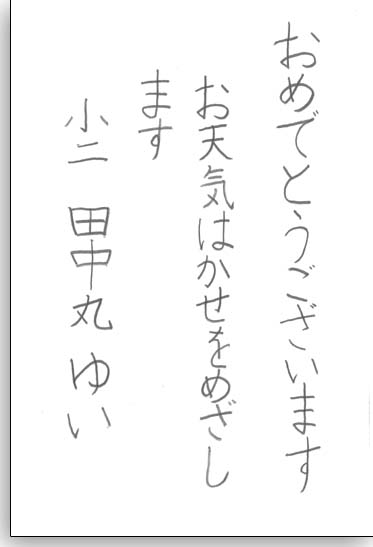 おめでとうございます
お天気はかせをめざし
ます
小二 田中丸 ゆい